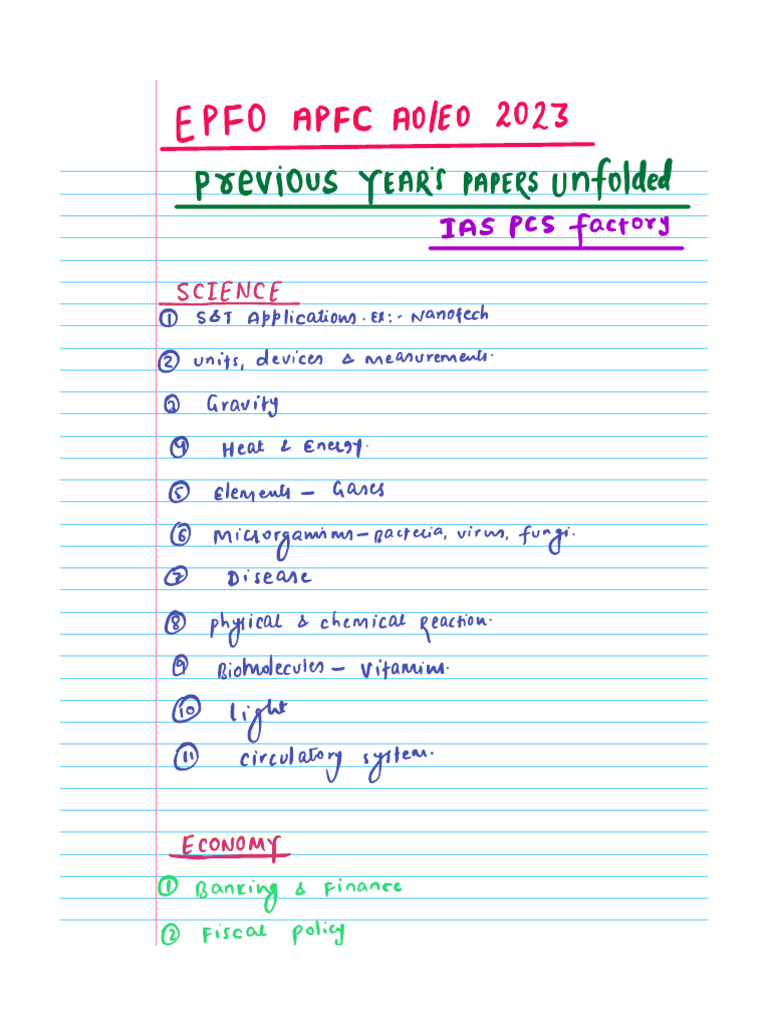 EPFO APFC AO/EO 2023
Previous YEAR'S PAPERS Unfolded
IAS PCS factory
SCIENCE
① S&T Applications. Ex:- Nanotech
② units, devices & measurements.
③ Gravity
④ Heat & Energy.
⑤ Elements – Gases
⑥ Microrganisms – Bacteria, virus, fungi.
⑦ Disease
⑧ physical & chemical Reaction.
⑨ Biomolecules – Vitamins.
⑩ light
⑪ circulatory system.
ECONOMY
① Banking & Finance
② Fiscal policy